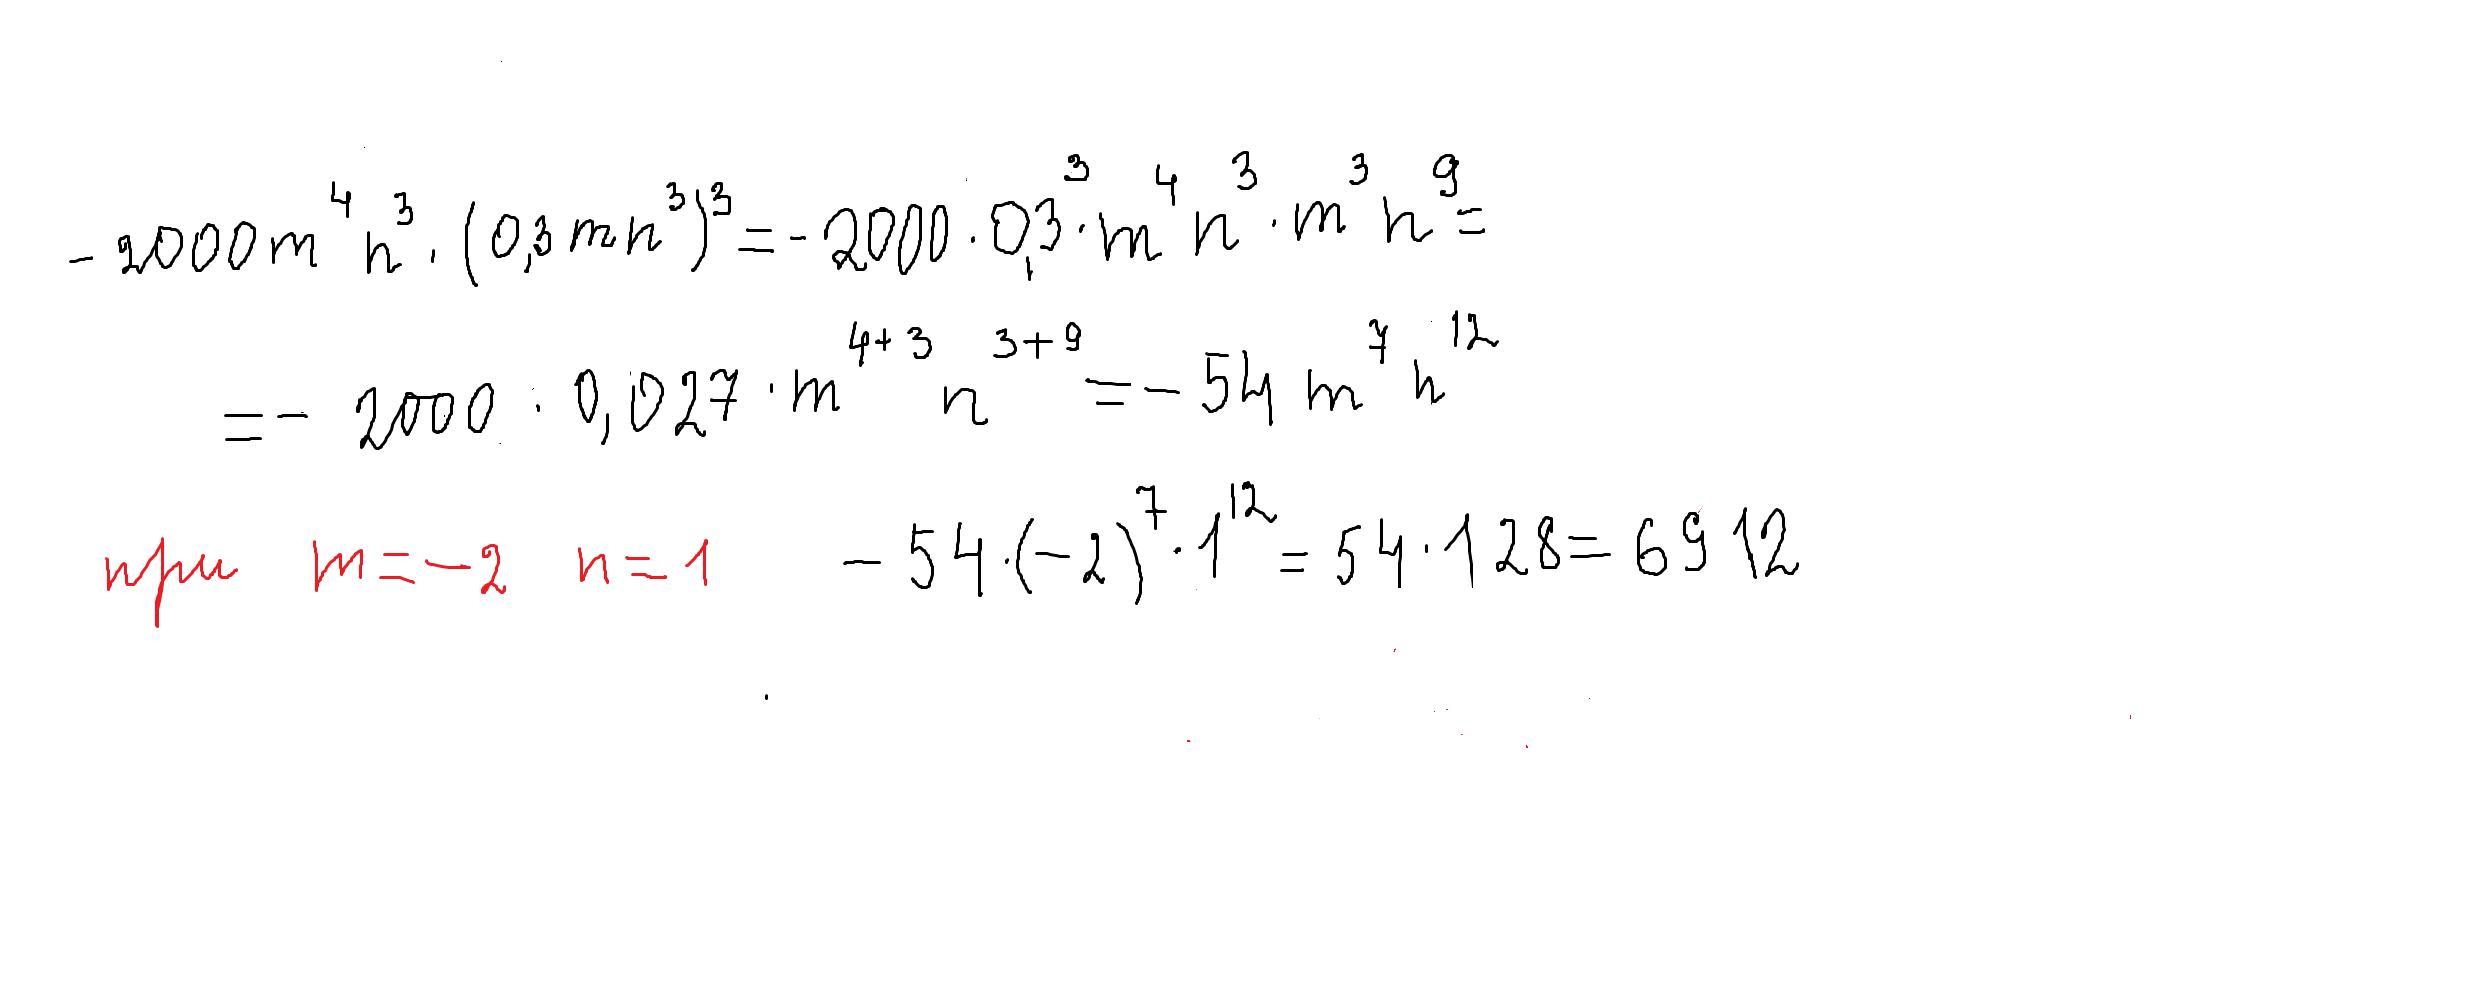 -2000m⁴n³·(0,3mn³)³=-2000·0,3³·m⁴n³·m³n⁹=
=-2000·0,027·m⁴⁺³n³⁺⁹=-54m⁷n¹²
при m=-2 n=1 -54·(-2)⁷·1¹²=54·128=6912